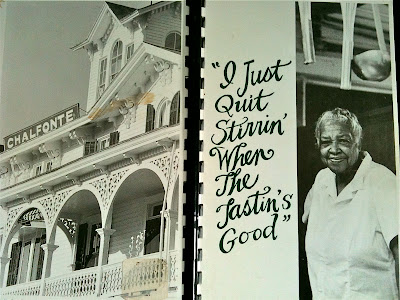 CHALFONTE
"I Just
Quit
Stirrin'
When
The
Tastin's
Good"